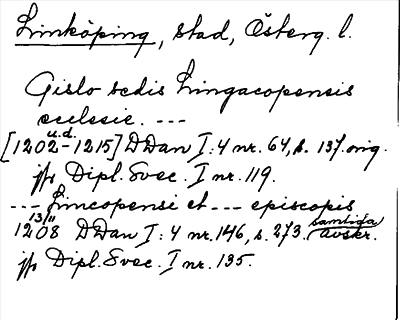 Linköping, stad, Österg. l.
Gislo sedis Lingacopensis
ecclesie. ---
[1202-1215] u.d. DDan I:4 nr. 64, s. 137. orig.
jfr Dipl. Svec. I nr. 119.
--- Lincopensi et --- episcopis
13/11 1208 DDan I:4 nr. 146, s. 273. samtida avskr.
jfr Dipl. Svec. I nr. 135.